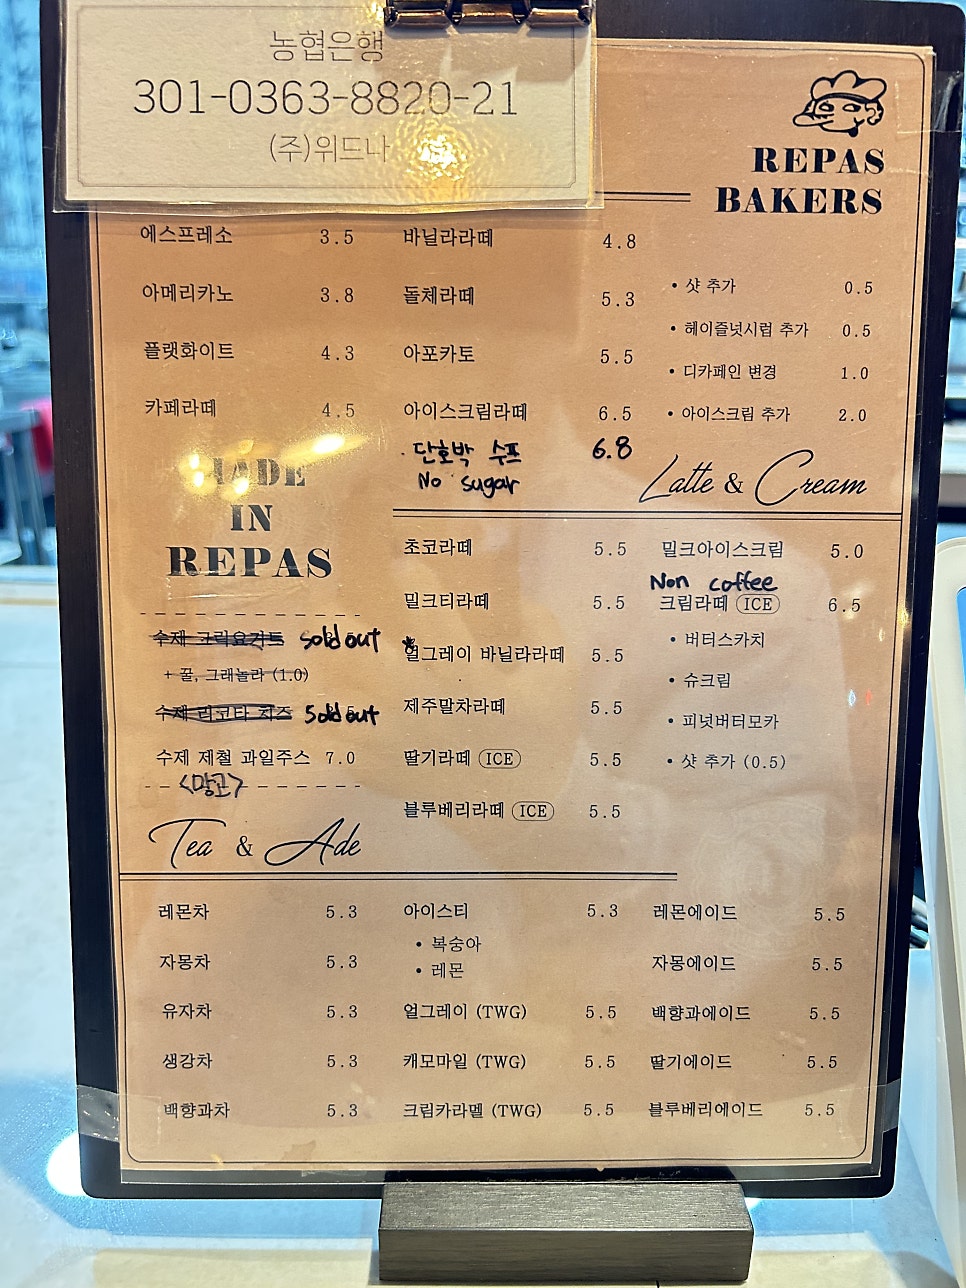 농협은행
301-0363-8820-21
(주)위드나
REPAS
BAKERS
에스프레소 3.5
아메리카노 3.8
플랫화이트 4.3
카페라떼 4.5
바닐라라떼 4.8
돌체라떼 5.3
아포카토 5.5
아이스크림라떼 6.5
· 단호박 수프 6.8
No sugar
• 샷 추가 0.5
• 헤이즐넛시럽 추가 0.5
• 디카페인 변경 1.0
• 아이스크림 추가 2.0
MADE
IN
REPAS
수제 그릭요거트 sold out
+ 꿀, 그래놀라 (1.0)
수제 리코타 치즈 sold out
수제 제철 과일주스 7.0
<망고>
Latte & Cream
초코라떼 5.5
밀크티라떼 5.5
얼그레이 바닐라라떼 5.5
제주말차라떼 5.5
딸기라떼 ICE 5.5
블루베리라떼 ICE 5.5
밀크아이스크림 5.0
Non coffee
크림라떼 ICE 6.5
• 버터스카치
• 슈크림
• 피넛버터모카
• 샷 추가 (0.5)
Tea & Ade
레몬차 5.3
자몽차 5.3
유자차 5.3
생강차 5.3
백향과차 5.3
아이스티 5.3
• 복숭아
• 레몬
얼그레이 (TWG) 5.5
캐모마일 (TWG) 5.5
크림카라멜 (TWG) 5.5
레몬에이드 5.5
자몽에이드 5.5
백향과에이드 5.5
딸기에이드 5.5
블루베리에이드 5.5